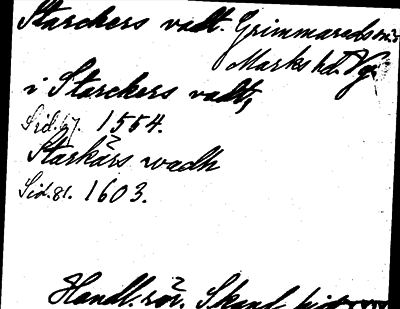 Starckers vadt. Grimmareds sn:s
Marks hd. Vg.
i Starckers vadt,
Sid. 67. 1554.
Starkårs wadh
Sid. 81. 1603.
Handl. rör. Skand.